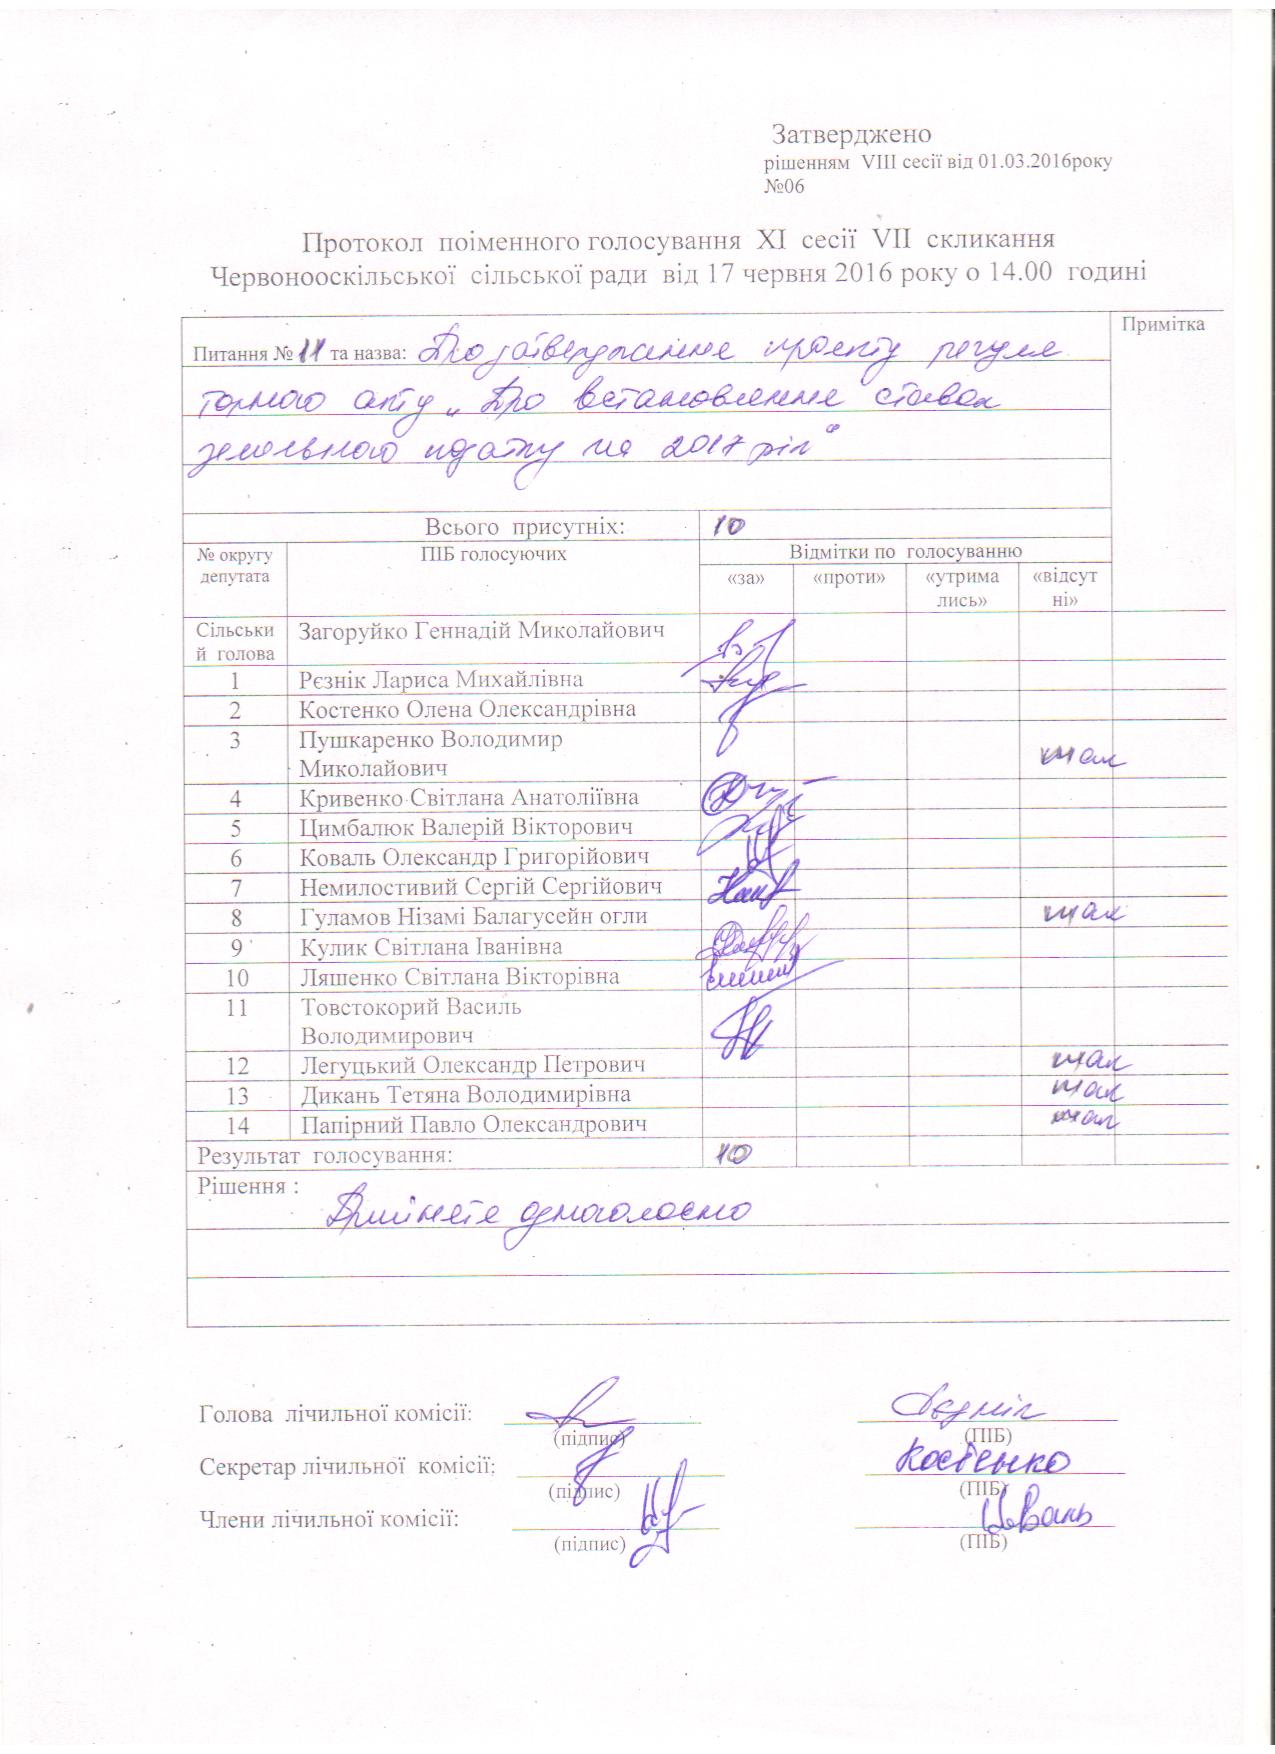 Затверджено
рішенням VIII сесії від 01.03.2016року
№06
Протокол поіменного голосування XI сесії VII скликання
Червонооскільської сільської ради від 17 червня 2016 року о 14.00 годині
Примітка
Питання № 11 та назва: Про затвердження проекту регуля
торного акту „Про встановлення ставок
земельного податку на 2017 рік“
Всього присутніх: 10
№ округу депутата ПІБ голосуючих Відмітки по голосуванню
«за» «проти» «утрима лись» «відсут ні»
Сільськи Загоруйко Геннадій Миколайович
й голова
1 Рєзнік Лариса Михайлівна
2 Костенко Олена Олександрівна
3 Пушкаренко Володимир
Миколайович
4 Кривенко Світлана Анатоліївна
5 Цимбалюк Валерій Вікторович
6 Коваль Олександр Григорійович
7 Немилостивий Сергій Сергійович
8 Гуламов Нізамі Балагусейн огли
9 Кулик Світлана Іванівна
10 Ляшенко Світлана Вікторівна
11 Товстокорий Василь
Володимирович
12 Легуцький Олександр Петрович
13 Дикань Тетяна Володимирівна
14 Папірний Павло Олександрович
Результат голосування: 10
Рішення :
Прийнято одноголосно
Голова лічильної комісії:
(підпис) (ПІБ)
Секретар лічильної комісії: Костенко
(підпис) (ПІБ)
Члени лічильної комісії:
(підпис) (ПІБ)